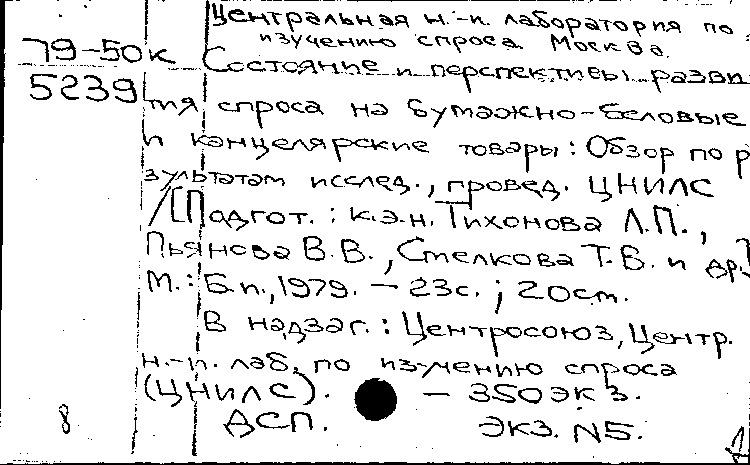 Центральная н.-и. лаборатория по
изучению спроса. Москва.
79-50к Состояние и перспективы разви
5239 тия спроса на бумажно-беловые
и канцелярские товары: Обзор по р
зультатам исслед., провед. ЦНИЛС
/[Подгот.: к.э.н. Тихонова Л.П.,
Пьянова В.В., Стелкова Т.Б. и др.]
М.: Б.и., 1979. — 23с.; 20см.
В надзаг.: Центросоюз, Центр.
н.-и. лаб. по изучению спроса
(ЦНИЛС). — 350экз.
8 ДСП. Экз. N5.